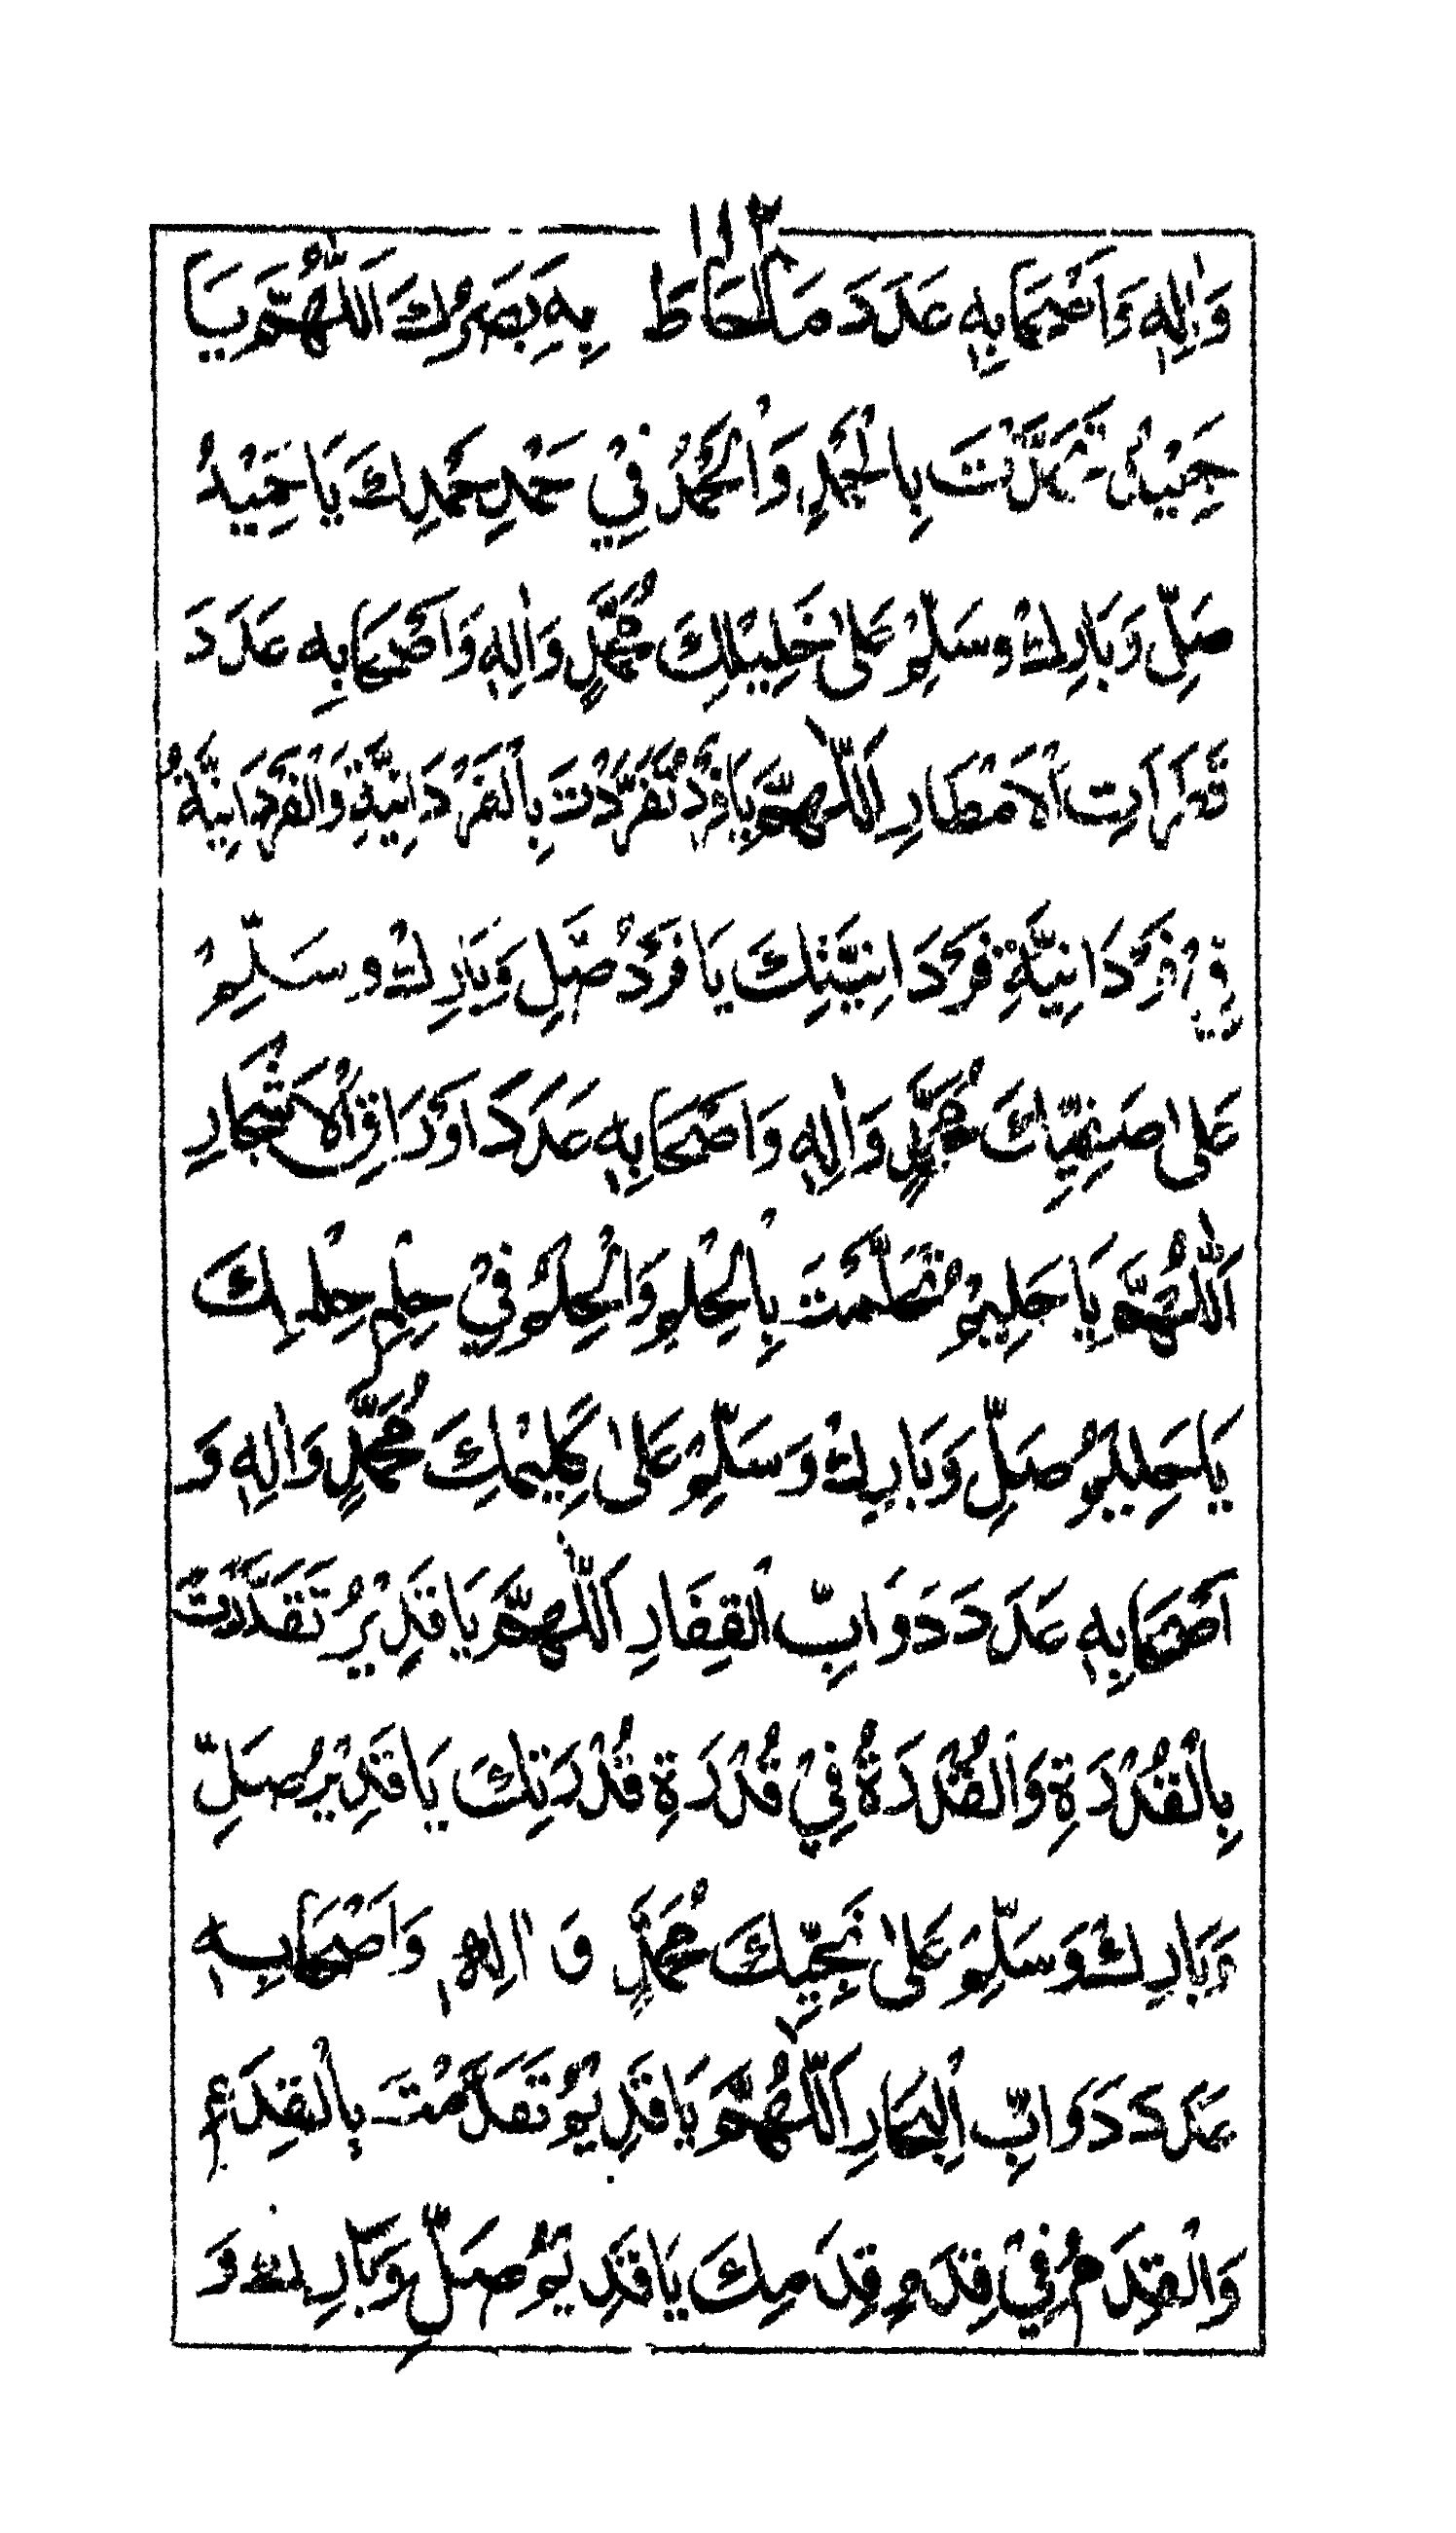 ١١٢
وَاٰلِهٖ وَاَصْحَابِهٖ عَدَدَ مَا اَحَاطَ بِهٖ بَصَرُكَ اَللّٰهُمَّ يَا
حَمِيْدُ تَحَمَّدْتَ بِالْحَمْدِ وَالْحَمْدُ فِيْ حَمْدِ حَمْدِكَ يَا حَمِيْدُ
صَلِّ وَبَارِكْ وَسَلِّمْ عَلٰى خَلِيْلِكَ مُحَمَّدٍ وَاٰلِهٖ وَاَصْحَابِهٖ عَدَدَ
قَطَرَاتِ الْاَمْطَارِ اَللّٰهُمَّ يَا فَرْدُ تَفَرَّدْتَ بِالْفَرْدَانِيَّةِ وَالْفَرْدَانِيَّةُ
فِيْ فَرْدَانِيَّةِ فَرْدَانِيَّتِكَ يَا فَرْدُ صَلِّ وَبَارِكْ وَسَلِّمْ
عَلٰى صَفِيِّكَ مُحَمَّدٍ وَاٰلِهٖ وَاَصْحَابِهٖ عَدَدَ اَوْرَاقِ الْاَشْجَارِ
اَللّٰهُمَّ يَا حَلِيْمُ تَحَلَّمْتَ بِالْحِلْمِ وَالْحِلْمُ فِيْ حِلْمِ حِلْمِكَ
يَا حَلِيْمُ صَلِّ وَبَارِكْ وَسَلِّمْ عَلٰى كَلِيْمِكَ مُحَمَّدٍ وَاٰلِهٖ وَ
اَصْحَابِهٖ عَدَدَ دَوَابِّ الْقِفَارِ اَللّٰهُمَّ يَا قَدِيْرُ تَقَدَّرْتَ
بِالْقُدْرَةِ وَالْقُدْرَةُ فِيْ قُدْرَةِ قُدْرَتِكَ يَا قَدِيْرُ صَلِّ
وَبَارِكْ وَسَلِّمْ عَلٰى نَجِيِّكَ مُحَمَّدٍ وَ اٰلِهٖ وَاَصْحَابِهٖ
عَدَدَ دَوَابِّ الْبِحَارِ اَللّٰهُمَّ يَا قَدِيْمُ تَقَدَّمْتَ بِالْقِدَمِ
وَالْقِدَمُ فِيْ قِدَمِ قِدَمِكَ يَا قَدِيْمُ صَلِّ وَبَارِكْ وَ